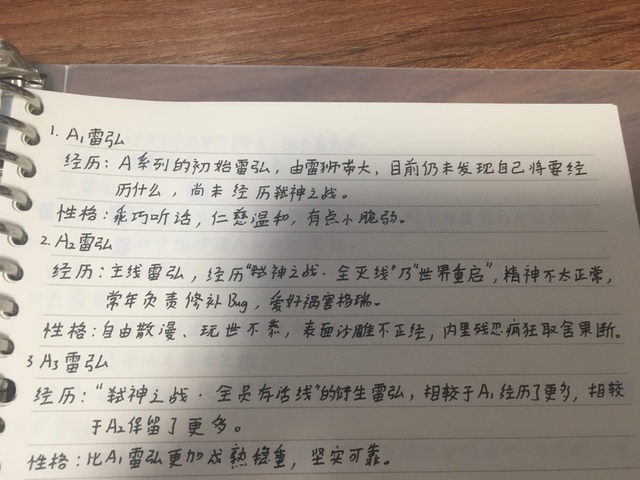 1. A₁雷弘
经历：A系列的初始雷弘，由雷狮带大，目前仍未发现自己将要经
历什么，尚未经历弑神之战。
性格：乖巧听话，仁慈温和，有点小脆弱。
2. A₂雷弘
经历：主线雷弘，经历“弑神之战·全灭线”乃“世界重启”，精神不太正常，
常年负责修补Bug，爱好祸害格瑞。
性格：自由散漫、玩世不恭，表面沙雕不正经，内里残忍疯狂取舍果断。
3 A₃雷弘
经历：“弑神之战·全员存活线”的衍生雷弘，相较于A₁经历了更多，相较
于A₂保留了更多。
性格：比A₁雷弘更加成熟稳重，坚实可靠。